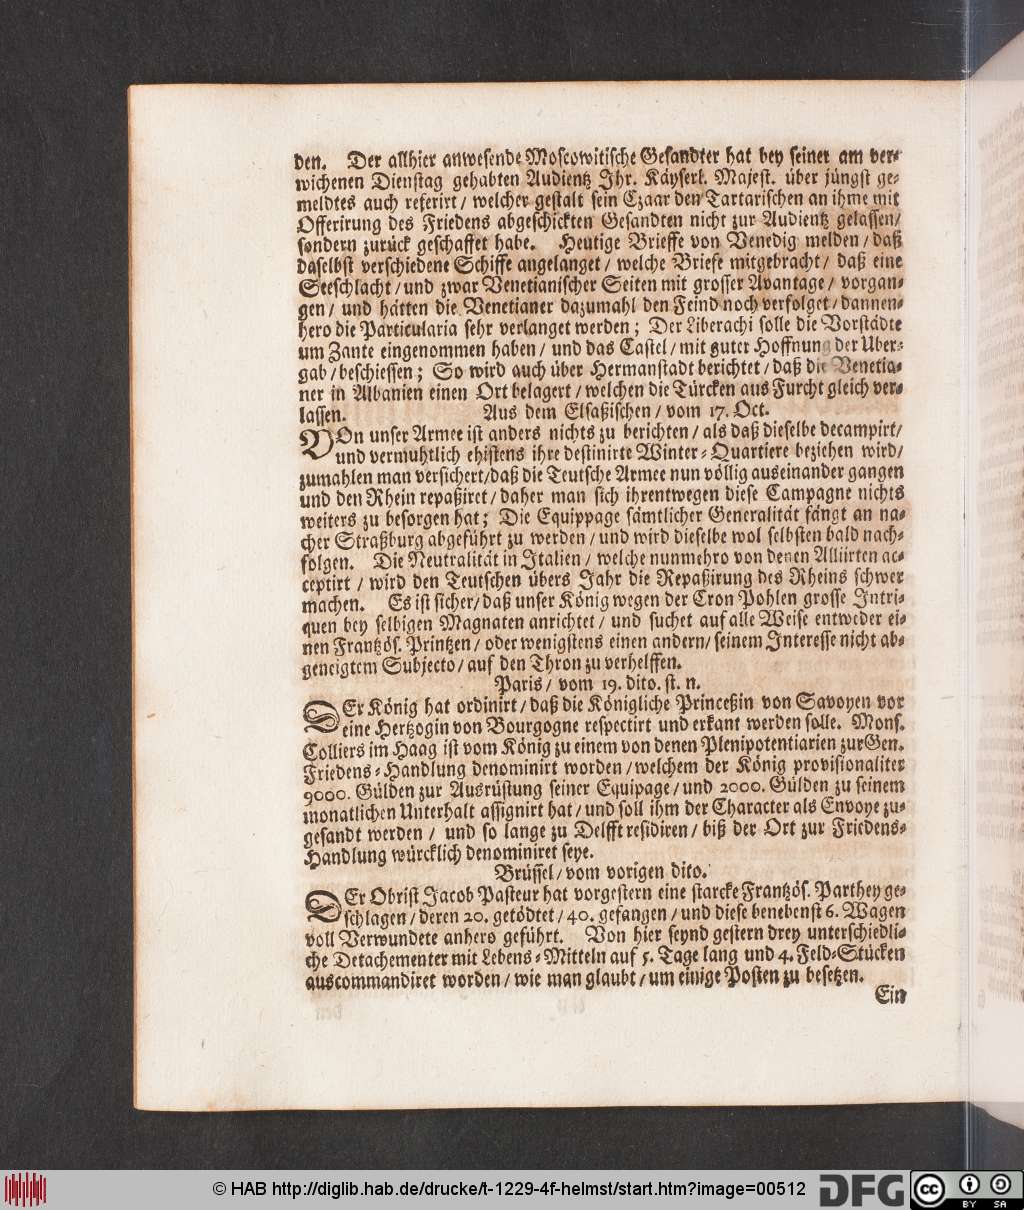 den. Der allhier anwesende Moscowitische Gesandter hat bey seiner am ver-
wichenen Dienstag gehabten Audientz Ihr. Käyserl. Majest. über jüngst ge-
meldtes auch referirt / welcher gestalt sein Czaar den Tartarischen an ihme mit
Offerirung des Friedens abgeschickten Gesandten nicht zur Audientz gelassen/
sondern zurück geschaffet habe. Heutige Brieffe von Venedig melden / daß
daselbst verschiedene Schiffe angelanget / welche Briefe mitgebracht / daß eine
Seeschlacht / und zwar Venetianischer Seiten mit grosser Avantage / vorgan-
gen / und hätten die Venetianer dazumahl den Feind noch verfolget / dannen-
hero die Particularia sehr verlanget werden ; Der Liberachi solle die Vorstädte
um Zante eingenommen haben / und das Castel / mit guter Hoffnung der Uber-
gab / beschiessen ; So wird auch über Hermanstadt berichtet / daß die Venetia-
ner in Albanien einen Ort belagert / welchen die Türcken aus Furcht gleich ver-
lassen. Aus dem Elsaßischen / vom 17. Oct.
VOn unser Armee ist anders nichts zu berichten / als daß dieselbe decampirt/
und vermuhtlich ehistens ihre destinirte Winter-Quartiere beziehen wird/
zumahlen man versichert/daß die Teutsche Armee nun völlig auseinander gangen
und den Rhein repaßiret / daher man sich ihrentwegen diese Campagne nichts
weiters zu besorgen hat ; Die Equippage sämtlicher Generalität fängt an na-
cher Straßburg abgeführt zu werden / und wird dieselbe wol selbsten bald nach-
folgen. Die Neutralität in Italien / welche nunmehro von denen Alliirten ac-
ceptirt / wird den Teutschen übers Jahr die Repaßirung des Rheins schwer
machen. Es ist sicher/ daß unser König wegen der Cron Pohlen grosse Intri-
quen bey selbigen Magnaten anrichtet / und suchet auf alle Weise entweder ei-
nen Frantzös. Printzen / oder wenigstens einen andern/ seinem Interesse nicht ab-
geneigtem Subjecto / auf den Thron zu verhelffen.
Paris / vom 19. dito. st. n.
DEr König hat ordinirt / daß die Königliche Princeßin von Savoyen vor
eine Hertzogin von Bourgogne respectirt und erkant werden solle. Mons.
Colliers im Haag ist vom König zu einem von denen Plenipotentiarien zur Gen.
Friedens-Handlung denominirt worden / welchem der König provisionaliter
9000. Gülden zur Ausrüstung seiner Equipage / und 2000. Gülden zu seinem
monatlichen Unterhalt assignirt hat / und soll ihm der Character als Envoye zu-
gesandt werden / und so lange zu Delfft residiren / biß der Ort zur Friedens-
Handlung würcklich denominiret seye.
Brüssel / vom vorigen dito.
DEr Obrist Jacob Pasteur hat vorgestern eine starcke Frantzös. Parthey ge-
schlagen / deren 20. getödtet / 40. gefangen / und diese benebenst 6. Wagen
voll Verwundete anhero geführt. Von hier seynd gestern drey unterschiedli-
che Detachementer mit Lebens-Mitteln auf 5. Tage lang und 4. Feld-Stücken
auscommandiret worden / wie man glaubt / um einige Posten zu besetzen.
Ein
© HAB http://diglib.hab.de/drucke/t-1229-4f-helmst/start.htm?image=00512
DFG
cc
BY SA